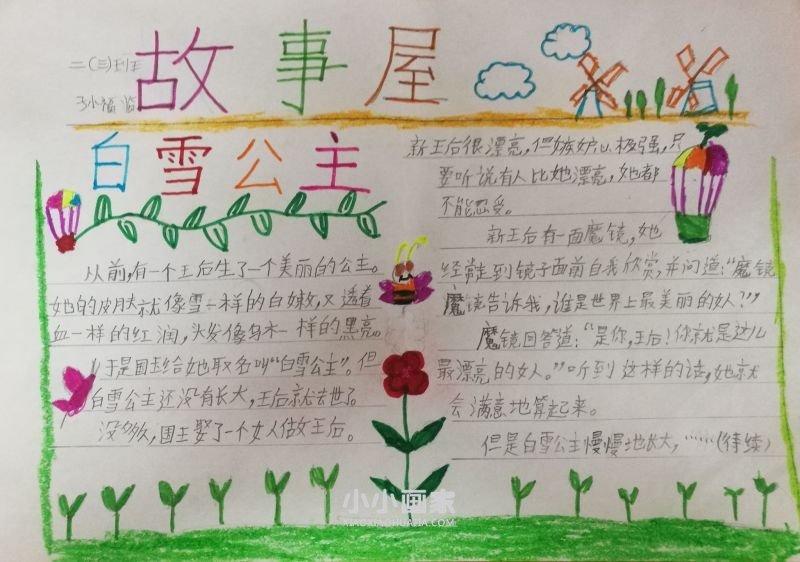 故事屋
二(三)班
白雪公主
从前,有一个王后生了一个美丽的公主。
她的皮肤就像雪一样的白嫩,又透着
血一样的红润,头发像乌木一样的黑亮。
于是国王给她取名叫“白雪公主”。但
白雪公主还没有长大,王后就去世了。
没多久,国王娶了一个女人做王后。
新王后很漂亮,但嫉妒心极强,只
要听说有人比她漂亮,她都
不能忍受。
新王后有一面魔镜,她
经常走到镜子面前自我欣赏,并问道:“魔镜
魔镜告诉我,谁是世界上最美丽的女人?”
魔镜回答道:“是你,王后!你就是这儿
最漂亮的女人。”听到这样的话,她就
会满意地算起来。
但是白雪公主慢慢地长大,……(待续)
小小画家
XIAOXIAOHUAJIA.COM